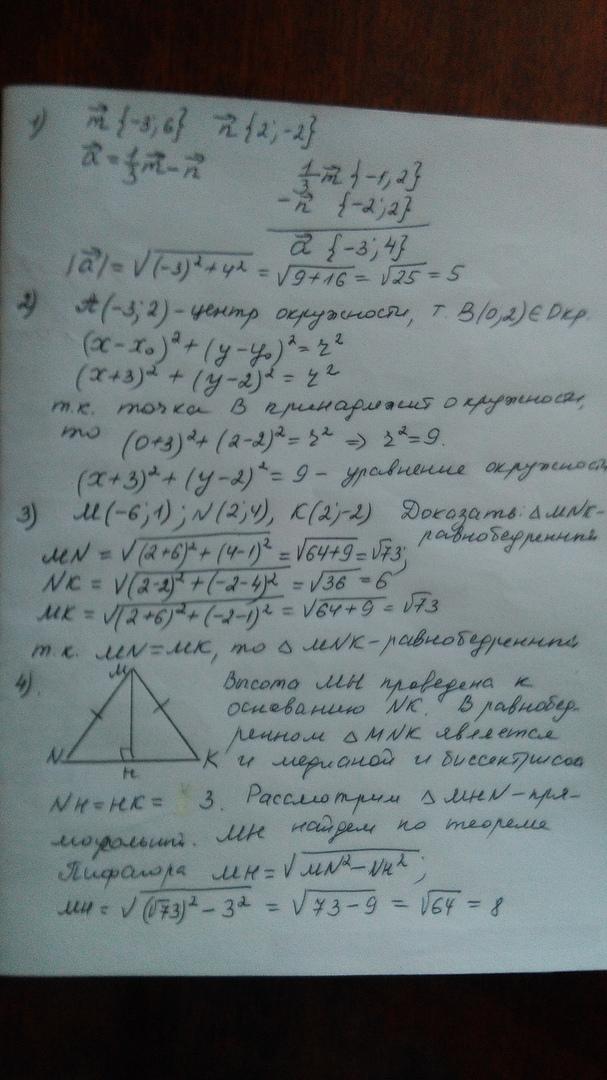 1) m⃗ {-3; 6} n⃗ {2; -2}
a⃗ = 1/3 m⃗ - n⃗
1/3 m⃗ {-1, 2}
-n⃗ {-2; 2}
a⃗ {-3; 4}
|a⃗| = √((-3)² + 4²) = √(9+16) = √25 = 5
2) A(-3; 2) - центр окружности, т. B(0, 2) ∈ Окр.
(x - x₀)² + (y - y₀)² = r²
(x+3)² + (y-2)² = r²
т.к. точка B принадлежит окружности,
то (0+3)² + (2-2)² = r² => r² = 9.
(x+3)² + (y-2)² = 9 - уравнение окружность
3) M(-6; 1); N(2; 4), K(2; -2) Доказать: △MNK-
равнобедренный
MN = √((2+6)² + (4-1)²) = √(64+9) = √73;
NK = √((2-2)² + (-2-4)²) = √36 = 6
MK = √((2+6)² + (-2-1)²) = √(64+9) = √73
т.к. MN = MK, то △ MNK - равнобедренный
4).
M
N
H
K
Высота MH проведена к
основанию NK. В равнобед-
ренном △MNK является
и медианой и биссектрисой
NH = HK = 3. Рассмотрим △ MHN - пря-
моугольный. MH найдем по теореме
Пифагора MH = √(MN² - NH²);
MH = √((√73)² - 3²) = √(73-9) = √64 = 8